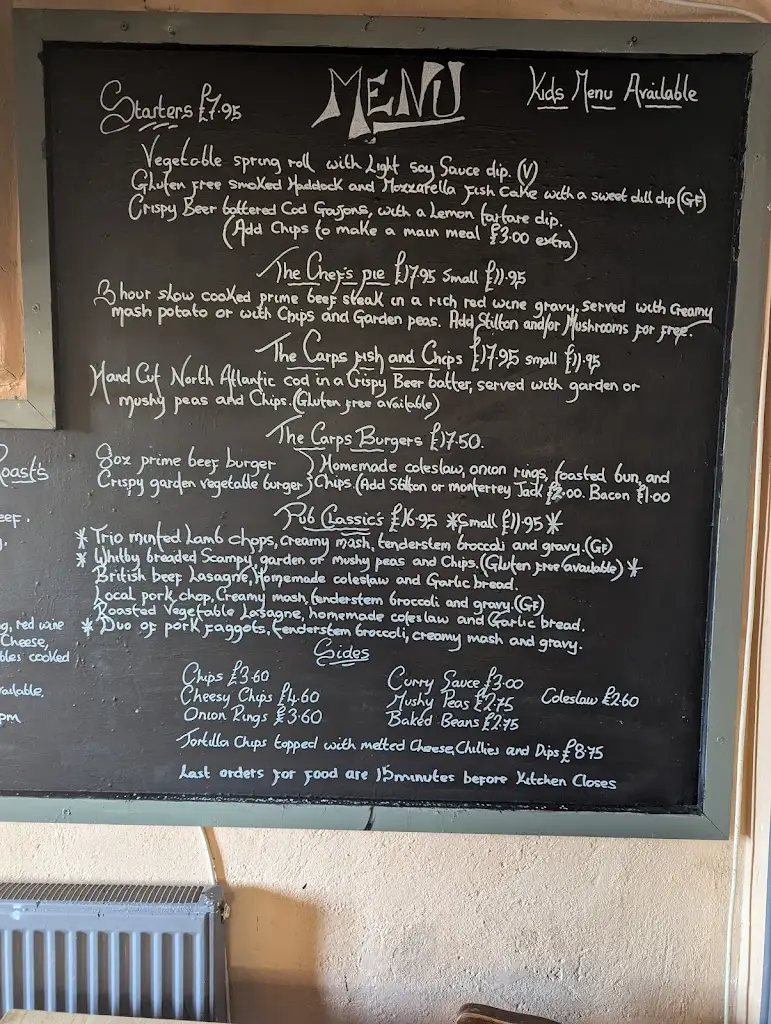 MENU
Kids Menu Available
Starters £7.95
Vegetable spring roll with Light soy Sauce dip. (V)
Gluten free smoked Haddock and Mozzarella fish cake with a sweet dill dip (GF)
Crispy Beer battered Cod Goujons, with a Lemon tartare dip.
(Add Chips to make a main meal £3.00 extra)
The Chef's pie £17.95 Small £11.95
3 hour slow cooked prime beef steak in a rich red wine gravy, served with Creamy
mash potato or with Chips and Garden peas. Add Stilton and/or Mushrooms for free.
The Carps fish and Chips £17.95 small £11.95
Hand Cut North Atlantic cod in a Crispy Beer batter, served with garden or
mushy peas and Chips. (Gluten free available)
The Carps Burgers £17.50.
8oz prime beef burger } Homemade coleslaw, onion rings, toasted bun, and
Crispy garden vegetable burger } Chips. (Add Stilton or monterrey Jack £2.00. Bacon £1.00
Pub Classic's £16.95 *Small £11.95*
* Trio minted Lamb chops, creamy mash, tenderstem broccoli and gravy. (GF)
* Whitby breaded Scampy, garden or mushy peas and Chips. (Gluten free available) *
British beef Lasagne, Homemade coleslaw and Garlic bread.
Local pork chop, Creamy mash, tenderstem broccoli and gravy. (GF)
Roasted Vegetable Lasagne, homemade coleslaw and Garlic bread.
* Duo of pork faggots, tenderstem broccoli, creamy mash and gravy.
Sides
Chips £3.60
Cheesy Chips £4.60
Onion Rings £3.60
Curry Sauce £3.00
Mushy Peas £2.75
Baked Beans £2.75
Coleslaw £2.60
Tortilla Chips topped with melted Cheese, Chillies and Dips £8.75
Last orders for food are 15 minutes before Kitchen Closes
Roast's
red wine
Cheese,
cooked
pm